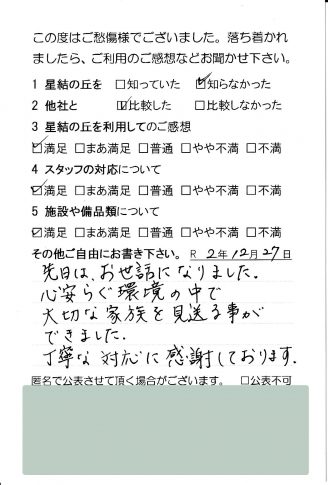 この度はご愁傷様でございました。落ち着かれ
ましたら、ご利用のご感想などお聞かせ下さい。
1 星結の丘を □知っていた ☑知らなかった
2 他社と ☑比較した □比較しなかった
3 星結の丘を利用してのご感想
☑満足 □まあ満足 □普通 □やや不満 □不満
4 スタッフの対応について
☑満足 □まあ満足 □普通 □やや不満 □不満
5 施設や備品類について
☑満足 □まあ満足 □普通 □やや不満 □不満
その他ご自由にお書き下さい。 R 2年12月27日
先日は、お世話になりました。
心安らぐ環境の中で
大切な家族を見送る事が
できました。
丁寧な対応に感謝しております。
匿名で公表させて頂く場合がございます。 □公表不可